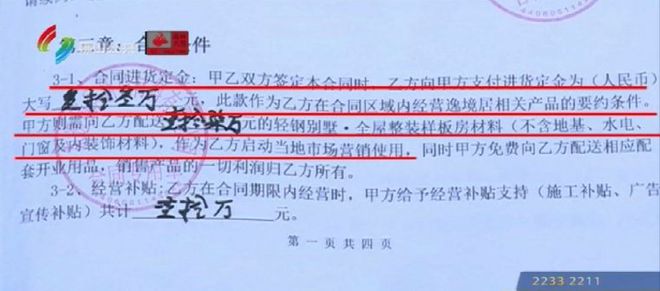 章、合 件
3-1、合同进货定金：甲乙双方签定本合同时，乙方向甲方支付进货定金为（人民币）
大写 元，此款作为乙方在合同区域内经营逸境居相关产品的要约条件。
甲方则需向乙方配送 壹拾柒万 元的轻钢别墅·全屋整装样板房材料（不含地基、水电、
门窗及内装饰材料），作为乙方启动当地市场营销使用，同时甲方免费向乙方配送相应配
套开业用品，销售产品的一切利润归乙方所有。
3-2、经营补贴：乙方在合同期限内经营时，甲方给予经营补贴支持（施工补贴、广告
宣传补贴）共计 壹拾万 元。
第一页共四页
2233 2211